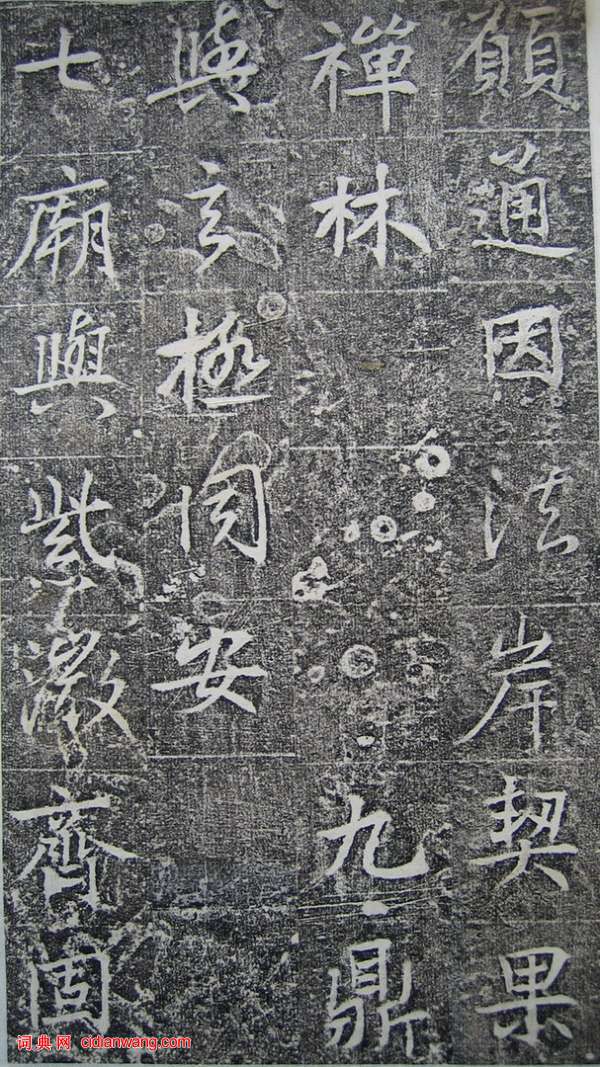 願通因法岸契果
禪林 九鼎
與玄極同安
七廟與紫微齊固
词典网 cidianwang.com